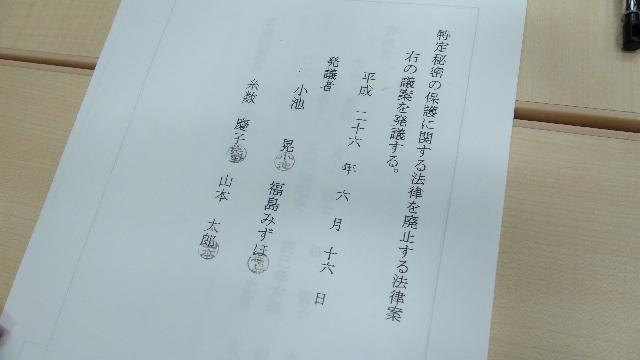 特定秘密の保護に関する法律を廃止する法律案
右の議案を発議する。
平成 二十六 年 六 月 十六 日
発議者
小池 晃 福島みずほ
糸数 慶子 山本 太郎